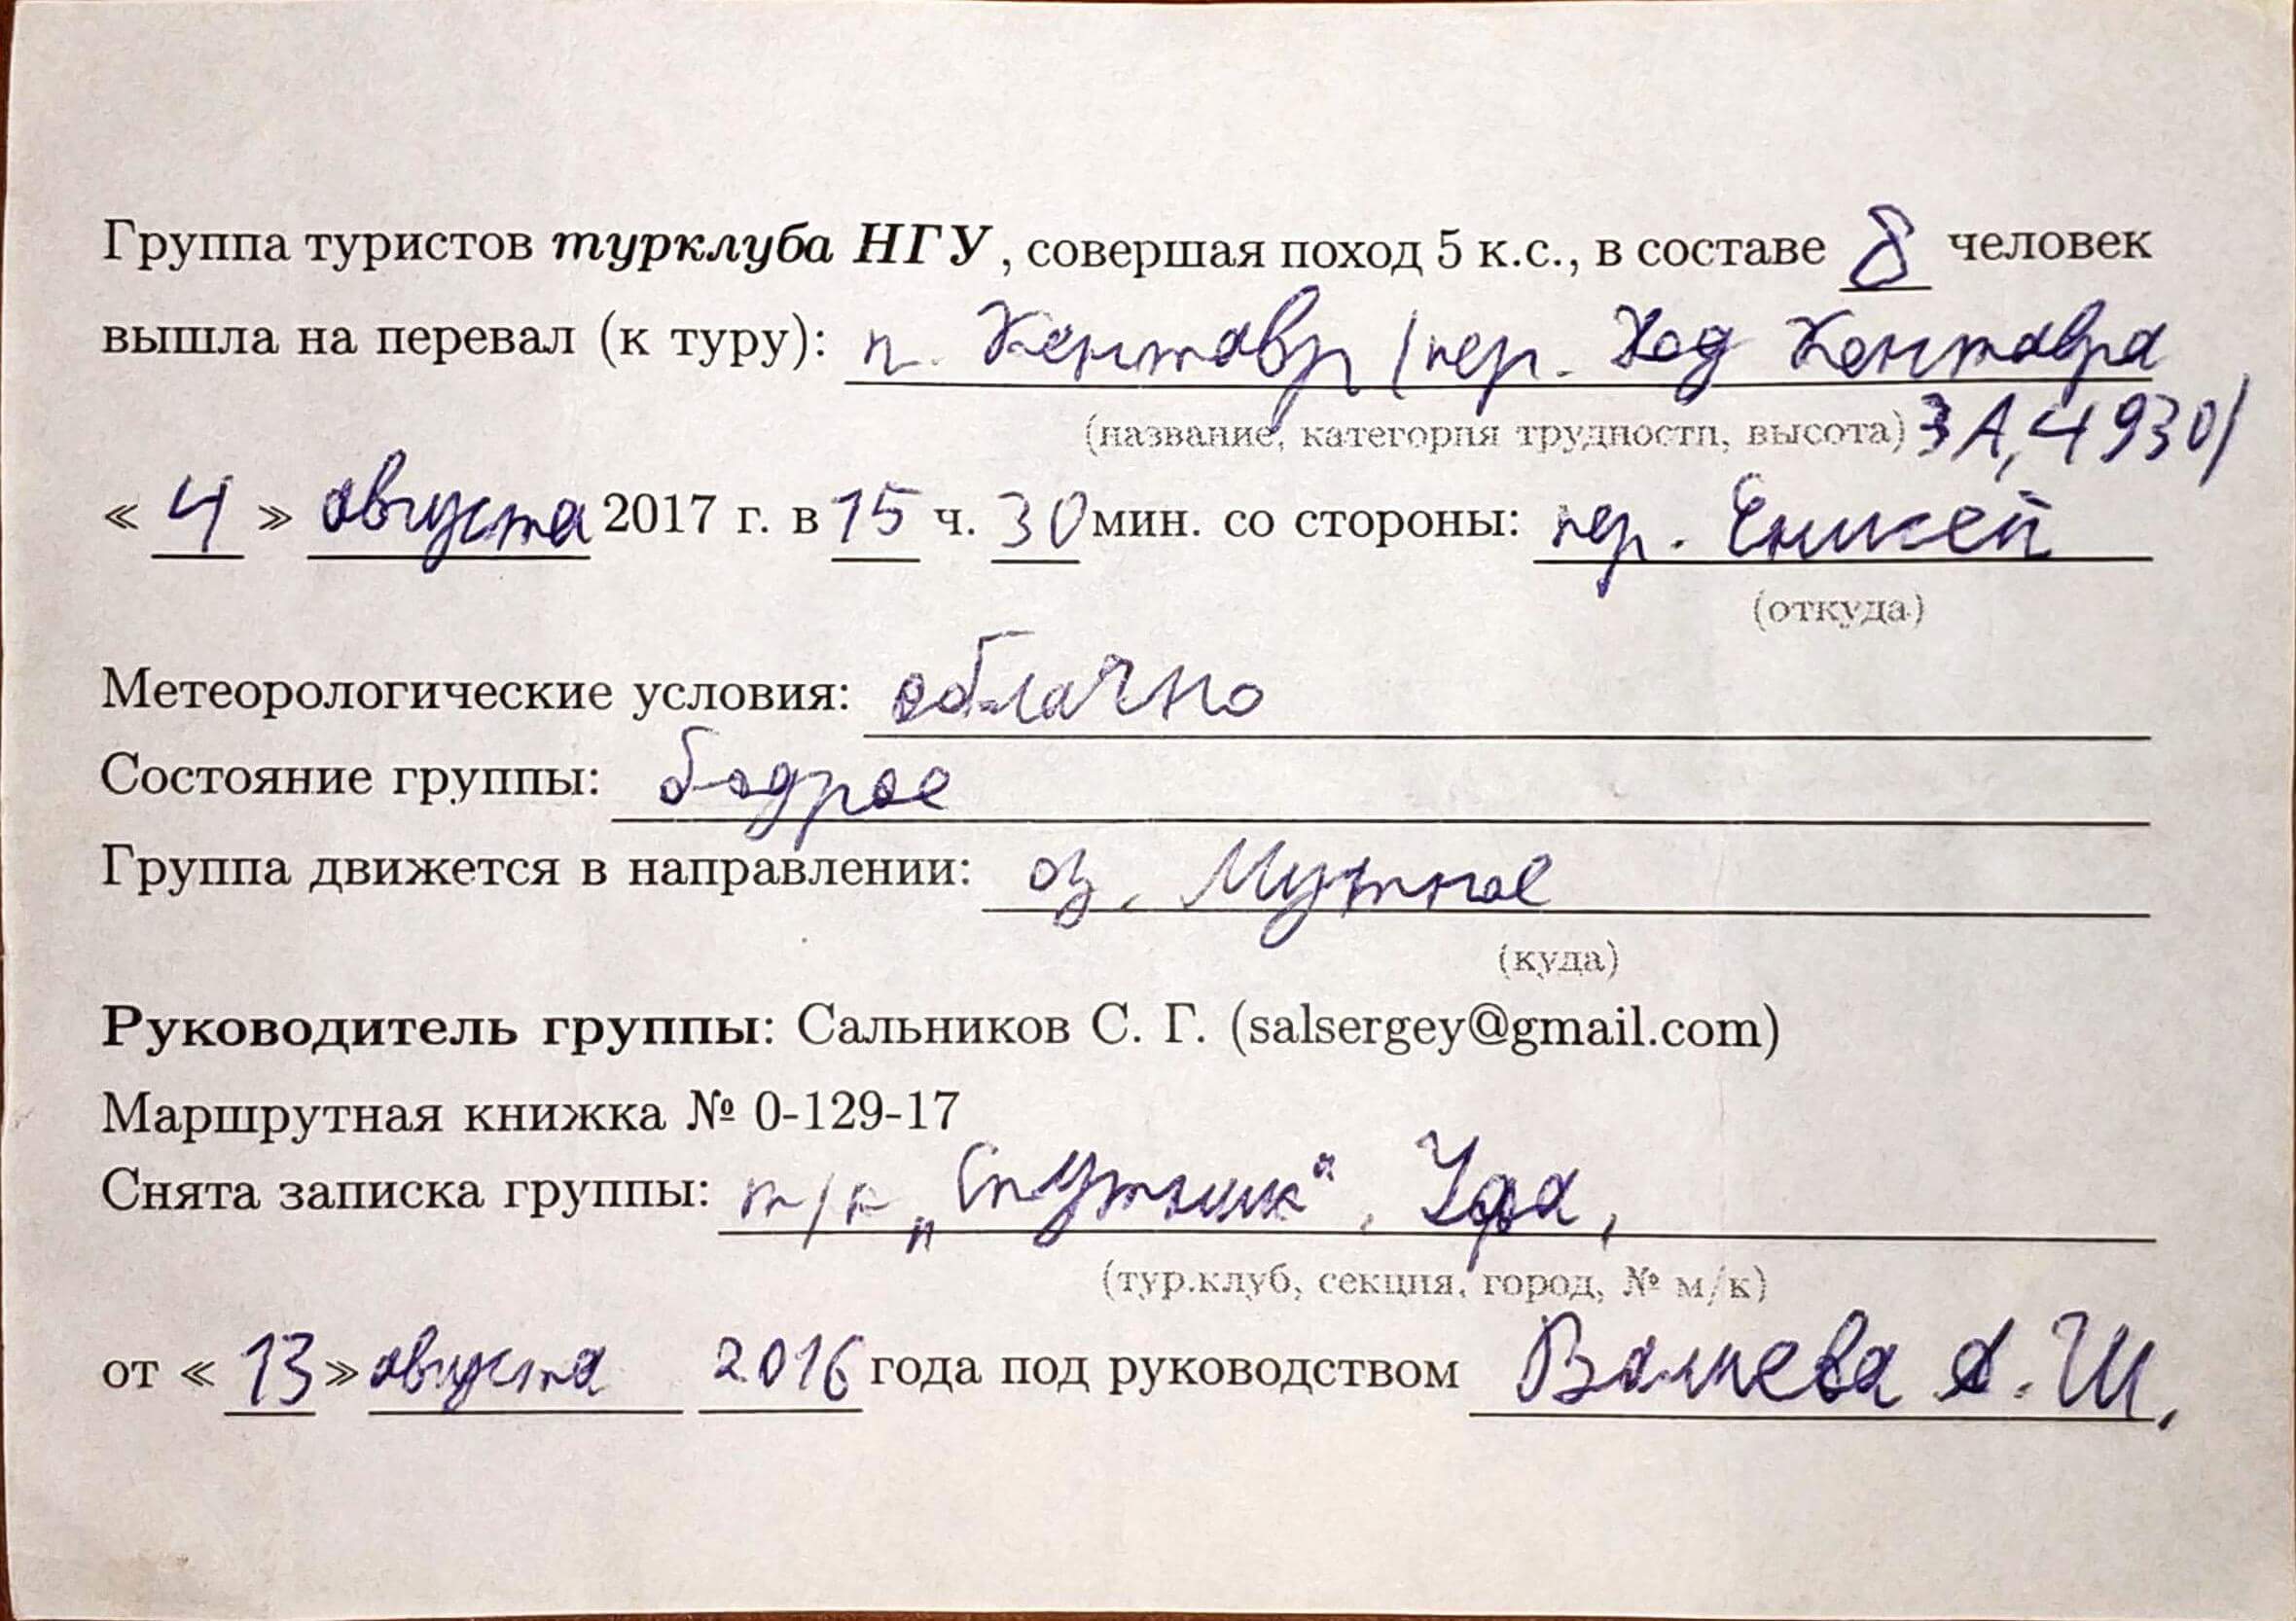 Группа туристов турклуба НГУ, совершая поход 5 к.с., в составе 8 человек
вышла на перевал (к туру): п. Кентавр (пер. Ход Кентавра
(название, категория трудности, высота) 3А, 4930)
« 4 » августа 2017 г. в 15 ч. 30 мин. со стороны: пер. Енисей
(откуда)
Метеорологические условия: облачно
Состояние группы: бодрое
Группа движется в направлении: оз. Мутное
(куда)
Руководитель группы: Сальников С. Г. (salsergey@gmail.com)
Маршрутная книжка № 0-129-17
Снята записка группы: т/к „Спутник“, Уфа,
(тур.клуб, секция, город, № м/к)
от « 13 » августа 2016 года под руководством Валиева А. Ш.